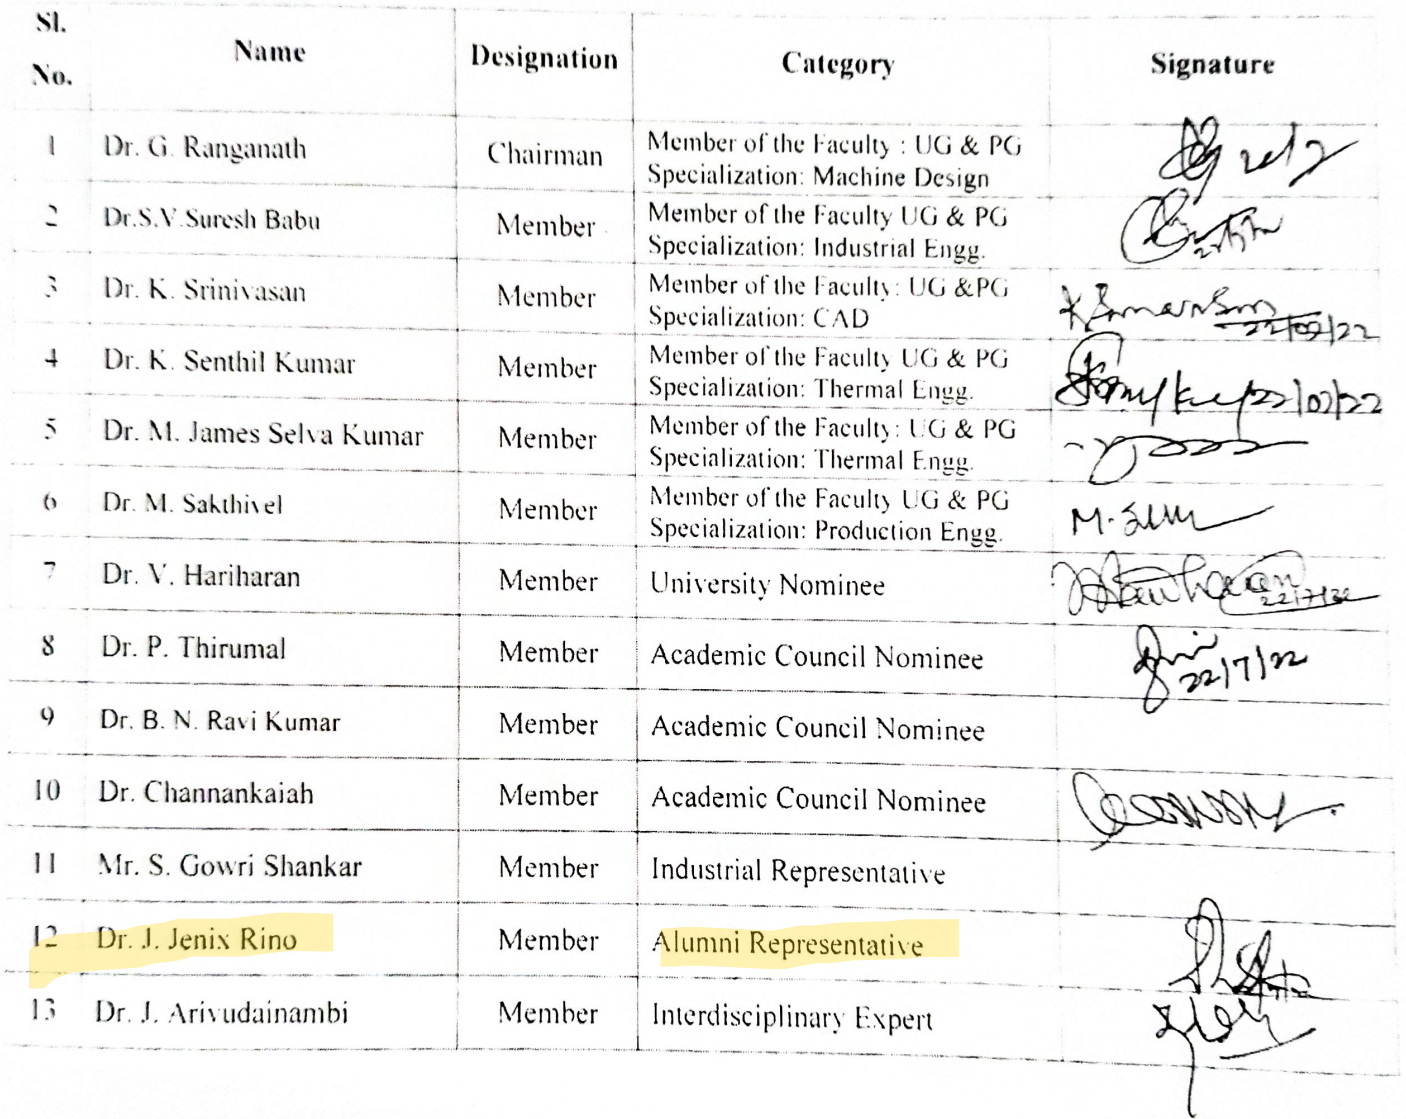 Sl. No. Name Designation Category Signature
1 Dr. G. Ranganath Chairman Member of the Faculty : UG & PG
Specialization: Machine Design
2 Dr.S.V.Suresh Babu Member Member of the Faculty UG & PG
Specialization: Industrial Engg.
3 Dr. K. Srinivasan Member Member of the Faculty: UG &PG
Specialization: CAD
22/07/22
4 Dr. K. Senthil Kumar Member Member of the Faculty UG & PG
Specialization: Thermal Engg.
22/07/22
5 Dr. M. James Selva Kumar Member Member of the Faculty: UG & PG
Specialization: Thermal Engg.
6 Dr. M. Sakthivel Member Member of the Faculty UG & PG
Specialization: Production Engg.
7 Dr. V. Hariharan Member University Nominee
22/7/22
8 Dr. P. Thirumal Member Academic Council Nominee
22/7/22
9 Dr. B. N. Ravi Kumar Member Academic Council Nominee
10 Dr. Channankaiah Member Academic Council Nominee
11 Mr. S. Gowri Shankar Member Industrial Representative
12 Dr. J. Jenix Rino Member Alumni Representative
13 Dr. J. Arivudainambi Member Interdisciplinary Expert